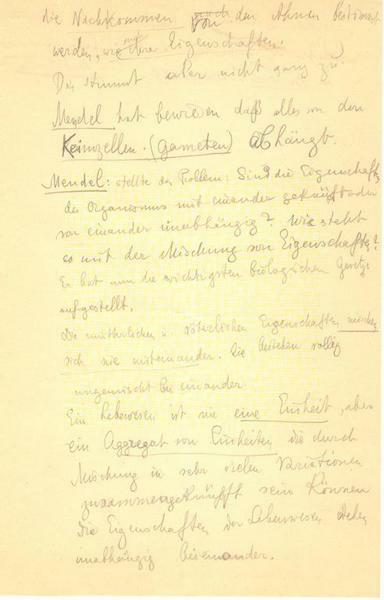 die Nachkommen nach von den Ahnen bestimmt
werden, wie ihre Eigenschaften.
Das stimmt aber nicht ganz zu.
Mendel hat bewiesen daß alles von den
Keimzellen (Gameten) abhängt.
Mendel: stellte das Problem: Sind die Eigenschaften
des Organismus mit einander geknüpft oder
von einander unabhängig? Wie steht
es mit der Mischung von Eigenschaften?
Er hat nun die wichtigsten biologischen Gesetze
aufgestellt.
Die mütterlichen u. väterlichen Eigenschaften mischen
sich nie miteinander. Sie bleiben völlig
ungemischt bei einander
Ein Lebewesen ist nie eine Einheit, aber
ein Aggregat von Einheiten die durch
Mischung in sehr vielen Variationen
zusammengeknüpft sein können
die Eigenschaften der Lebewesen
unabhängig beieinander.